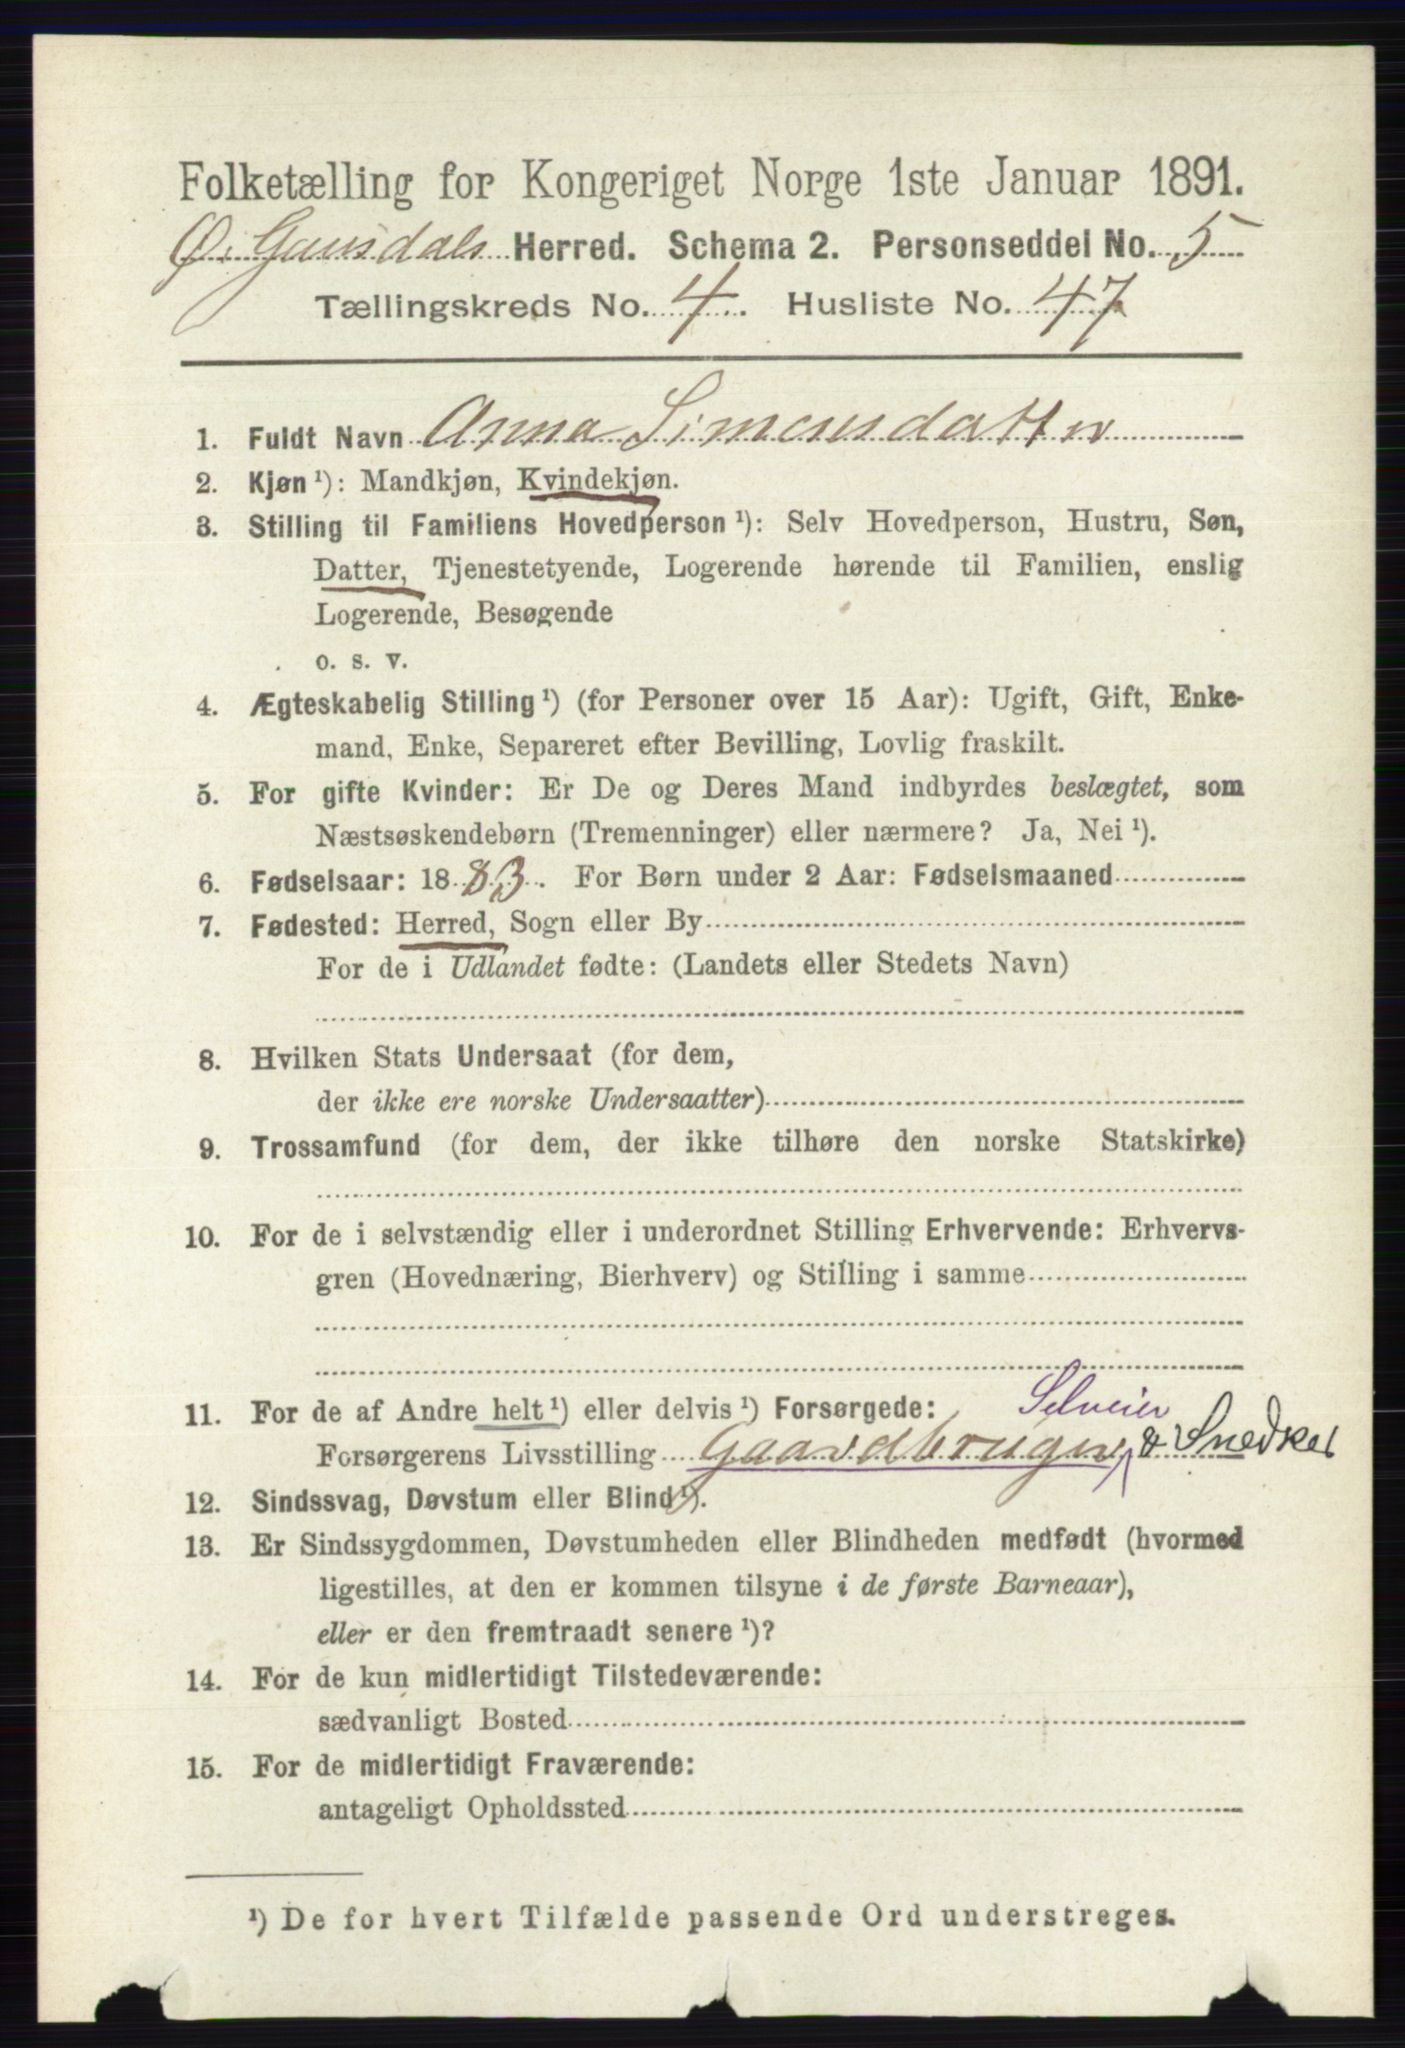 Folketælling for Kongeriget Norge 1ste Januar 1891.
Ø. Gausdals Herred. Schema 2. Personseddel No. 5
Tællingskreds No. 4. Husliste No. 47
1. Fuldt Navn Anna Simensdatter
2. Kjøn ¹): Mandkjøn, Kvindekjøn.
3. Stilling til Familiens Hovedperson ¹): Selv Hovedperson, Hustru, Søn,
Datter, Tjenestetyende, Logerende hørende til Familien, enslig
Logerende, Besøgende
o. s. v.
4. Ægteskabelig Stilling ¹) (for Personer over 15 Aar): Ugift, Gift, Enke-
mand, Enke, Separeret efter Bevilling, Lovlig fraskilt.
5. For gifte Kvinder: Er De og Deres Mand indbyrdes beslægtet, som
Næstsøskendebørn (Tremenninger) eller nærmere? Ja, Nei ¹).
6. Fødselsaar: 1883. For Børn under 2 Aar: Fødselsmaaned
7. Fødested: Herred, Sogn eller By
For de i Udlandet fødte: (Landets eller Stedets Navn)
8. Hvilken Stats Undersaat (for dem,
der ikke ere norske Undersaatter)
9. Trossamfund (for dem, der ikke tilhøre den norske Statskirke)
10. For de i selvstændig eller i underordnet Stilling Erhvervende: Erhvervs-
gren (Hovednæring, Bierhverv) og Stilling i samme
11. For de af Andre helt ¹) eller delvis ¹) Forsørgede: Selveier
Forsørgerens Livsstilling Gaardbruger & Snedker
12. Sindssvag, Døvstum eller Blind ¹).
13. Er Sindssygdommen, Døvstumheden eller Blindheden medfødt (hvormed
ligestilles, at den er kommen tilsyne i de første Barneaar),
eller er den fremtraadt senere ¹)?
14. For de kun midlertidigt Tilstedeværende:
sædvanligt Bosted
15. For de midlertidigt Fraværende:
antageligt Opholdssted
¹) De for hvert Tilfælde passende Ord understreges.